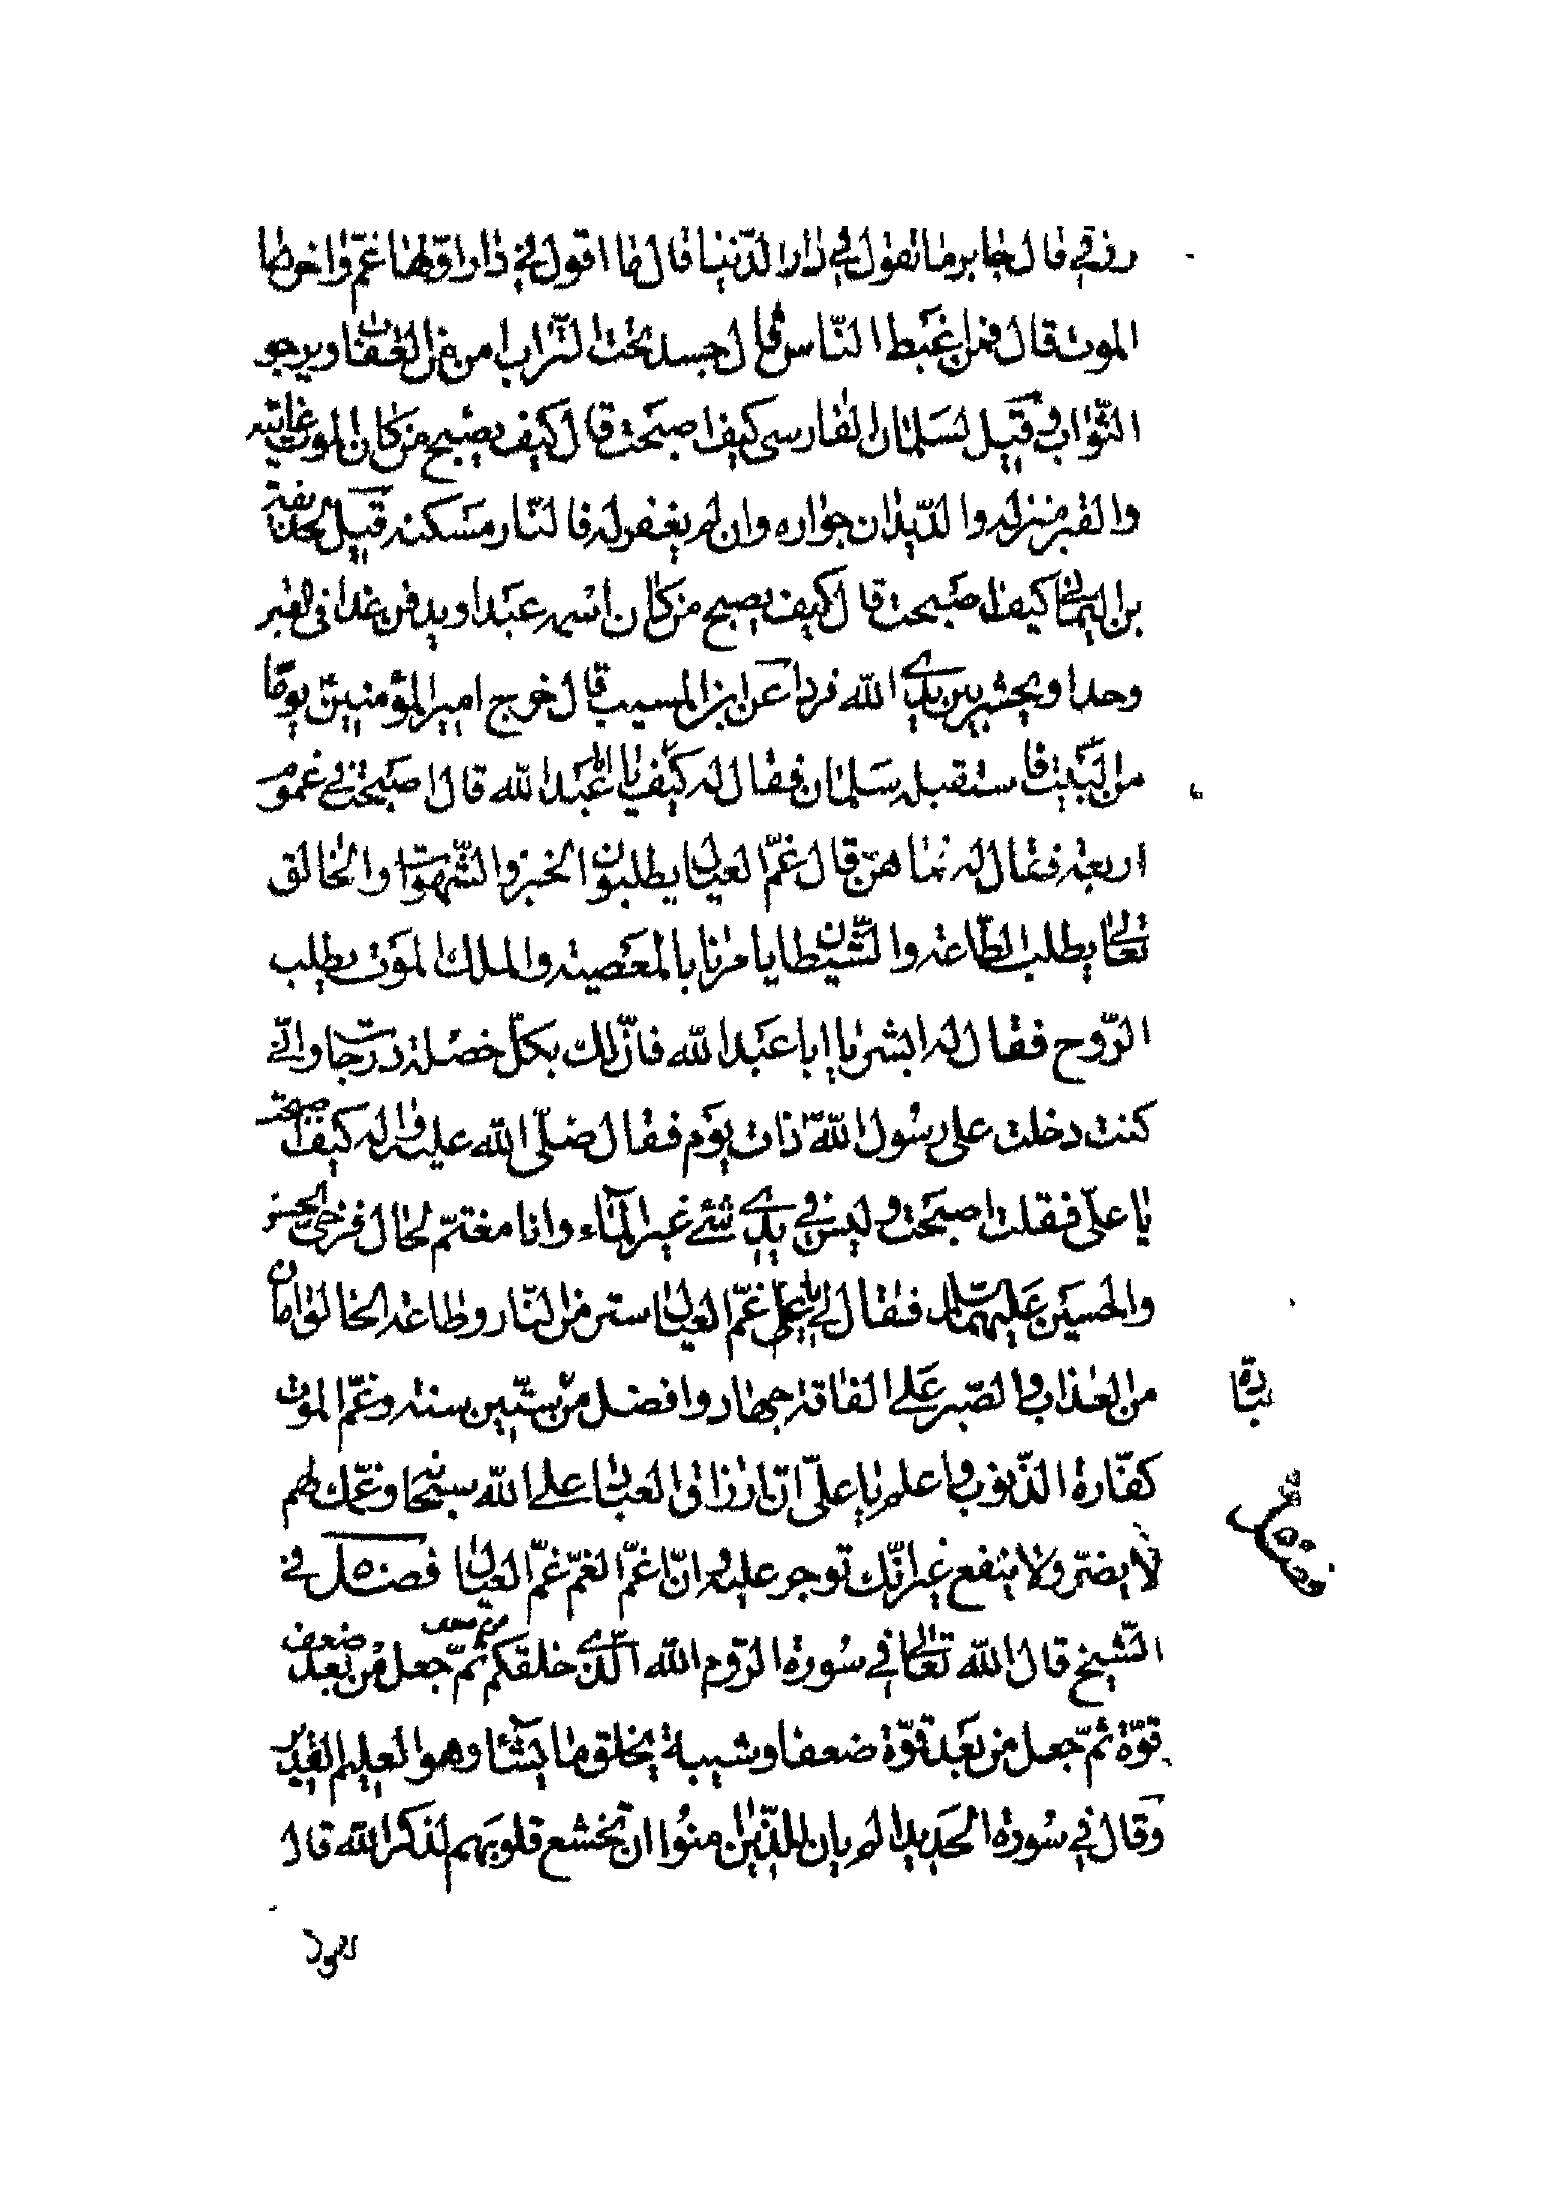 رزقي قال جابر ما تقول في دار الدّنيا قال ما اقول في دار اوّلها غمّ واخرها
الموت قال فمن اغبط النّاس قال جسد تحت التّراب امن من العقاب ويرجو
الثّواب وقيل لسلمان الفارسى كيف اصبحت قال كيف يصبح من كان الموت غايته
والقبر منزله والدّيدان جواره وان لم يغفر له فالنّار مسكنه قيل لحذيفة
بن اليماني كيف اصبحت قال كيف يصبح من كان اسمه عبدا ويدفن غدا في القبر
وحدا ويحشر بين يدي الله فردا عن ابن المسيب قال خرج امير المؤمنين يوما
من البيت فاستقبله سلمان فقال له كيف يا ابا عبد الله قال اصبحت في غموم
اربعة فقال له ما هنّ قال غمّ العيال يطلبون الخبز والشّهوات والخالق
تعالى يطلب الطّاعة والشّيطان يامرنا بالمعصية والملك الموت يطلب
الرّوح فقال له ابشر يا ابا عبد الله فانّ لك بكلّ خصلة درجات وانّي
كنت دخلت على رسول الله ذات يوم فقال صلّى الله عليه واله كيف اصبحت
يا علىّ فقلت اصبحت وليس في يدي شئ غير الماء وانا مغتمّ لحال فرخي الحسن
والحسين عليهما السلام فقال لي يا على غمّ العيال ستر من النّار وطاعة الخالق امان
من العذاب والصّبر على الفاقة جهاد وافضل من ستّين سنة وغمّ الموت
كفّارة الذّنوب واعلم يا علىّ انّ ارزاق العباد على الله سبحانه وغمّك لهم
لا يضرّ ولا ينفع غير انّك توجر عليه وانّ اغمّ الغمّ غمّ العيال فصل في
الشّيخ قال الله تعالى في سورة الرّوم الله الّذي خلقكم من ضعف ثمّ جعل من بعد ضعف
قوّة ثمّ جعل من بعد قوّة ضعفا وشيبة يخلق ما يشاء وهو العليم القدير
وقال في سورة الحديد الم يان للّذين امنوا ان تخشع قلوبهم لذكر الله قال